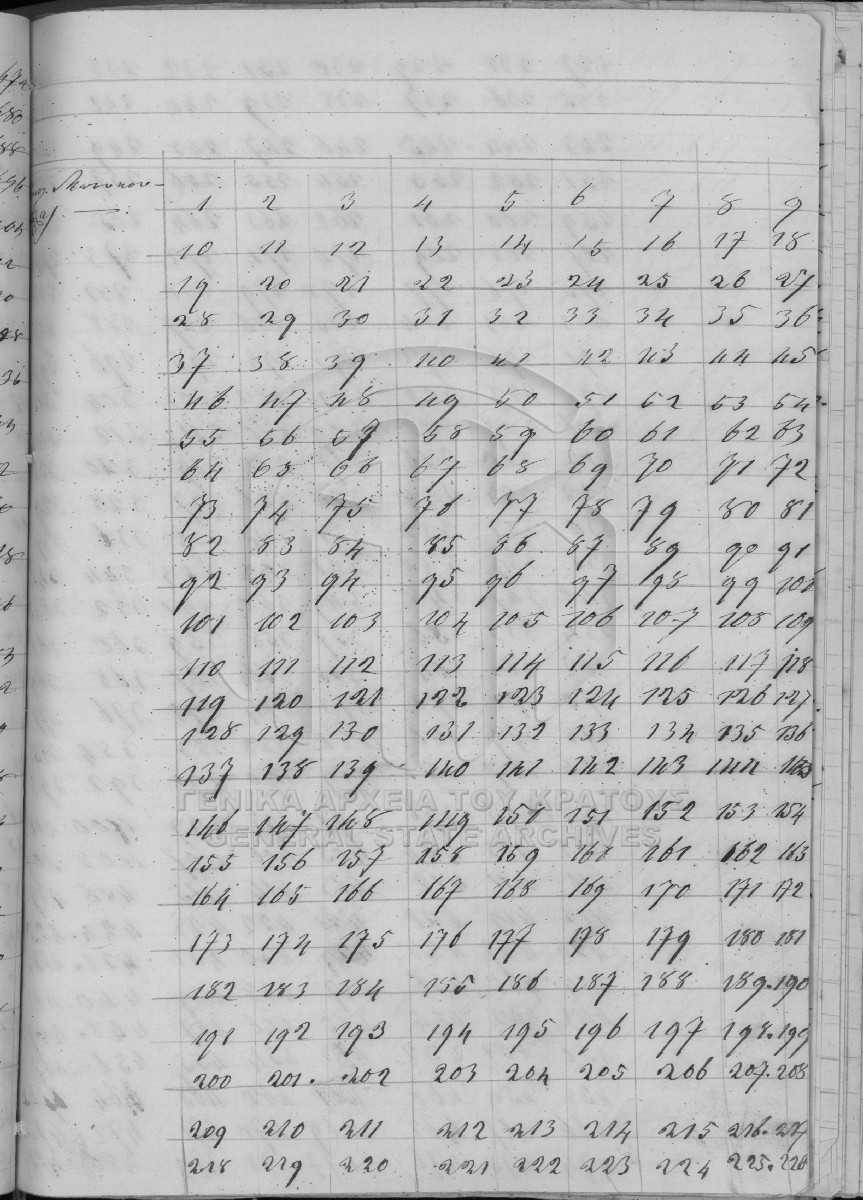 1 2 3 4 5 6 7 8 9
10 11 12 13 14 15 16 17 18
19 20 21 22 23 24 25 26 27
28 29 30 31 32 33 34 35 36
37 38 39 40 41 42 43 44 45
46 47 48 49 50 51 52 53 54
55 56 57 58 59 60 61 62 63
64 65 66 67 68 69 70 71 72
73 74 75 76 77 78 79 80 81
82 83 84 85 86 87 89 90 91
92 93 94 95 96 97 98 99 100
101 102 103 104 105 106 107 108 109
110 111 112 113 114 115 116 117 118
119 120 121 122 123 124 125 126 127
128 129 130 131 132 133 134 135 136
137 138 139 140 141 142 143 144 145
ΓΕΝΙΚΑ ΑΡΧΕΙΑ ΤΟΥ ΚΡΑΤΟΥΣ
146 147 148 149 150 151 152 153 154
GENERAL STATE ARCHIVES
155 156 157 158 159 160 161 162 163
164 165 166 167 168 169 170 171 172
173 174 175 176 177 178 179 180 181
182 183 184 155 186 187 188 189. 190
191 192 193 194 195 196 197 198. 199
200 201. 202 203 204 205 206 207. 208
209 210 211 212 213 214 215 216. 217
218 219 220 221 222 223 224 225. 226